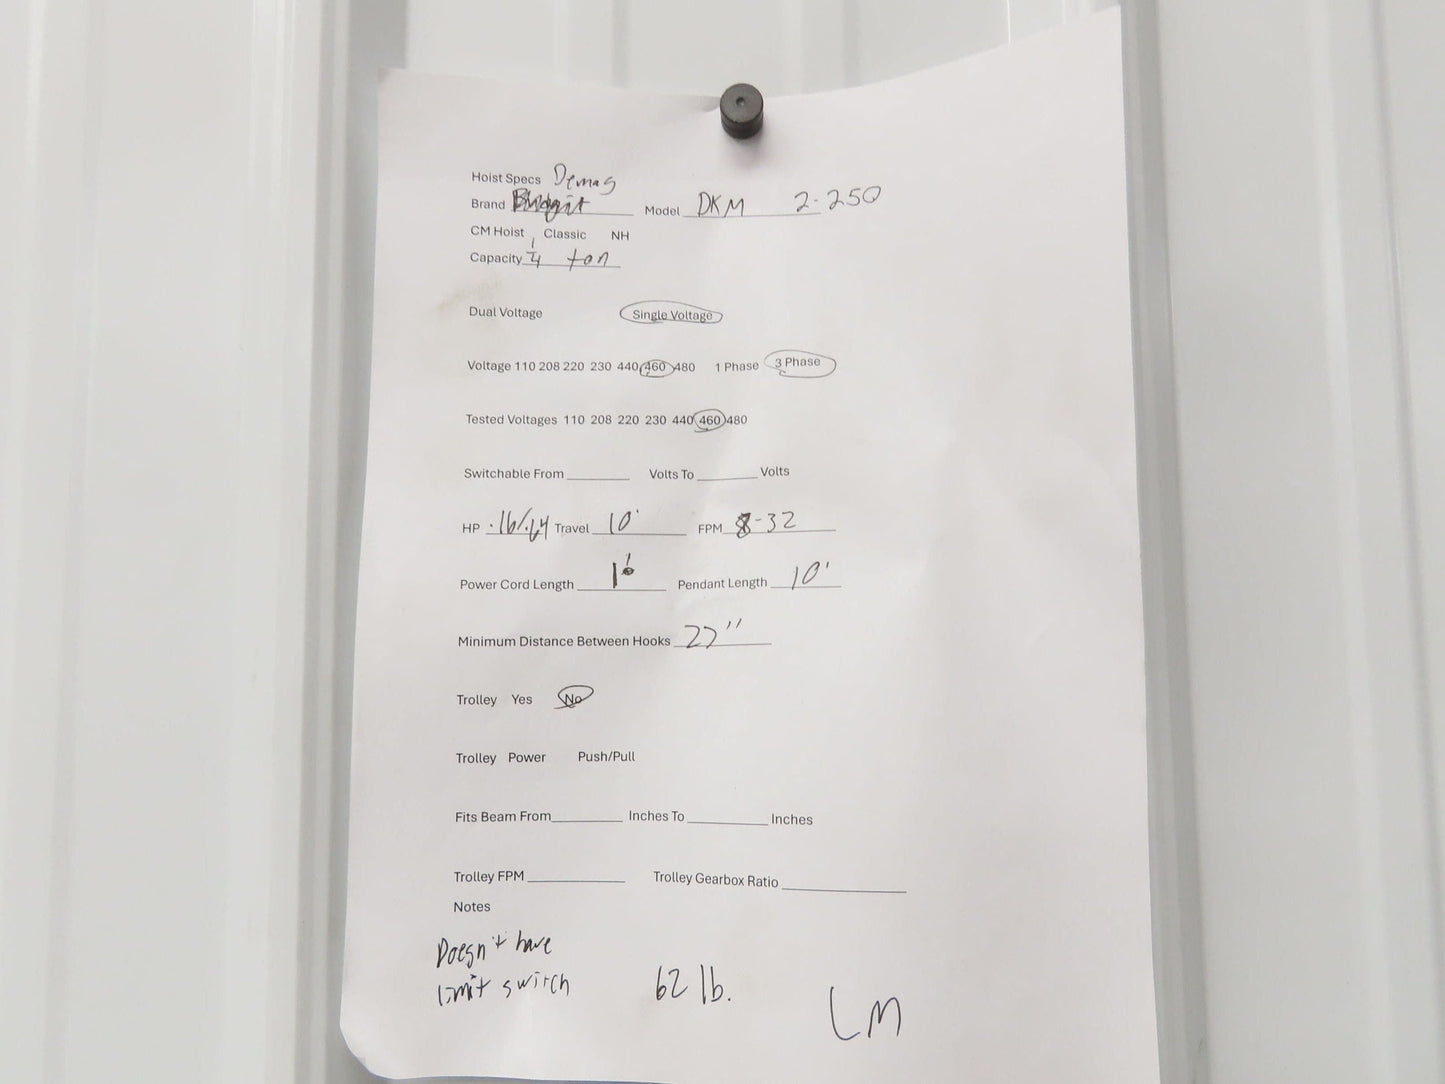 Hoist Specs Demag
Brand Budgit Model DKM 2-250
CM Hoist Classic NH
Capacity 1/4 ton
Dual Voltage Single Voltage
Voltage 110 208 220 230 440 460 480 1 Phase 3 Phase
Tested Voltages 110 208 220 230 440 460 480
Switchable From Volts To Volts
HP .16/.64 Travel 10' FPM 8-32
Power Cord Length 1' Pendant Length 10'
Minimum Distance Between Hooks 27"
Trolley Yes No
Trolley Power Push/Pull
Fits Beam From Inches To Inches
Trolley FPM Trolley Gearbox Ratio
Notes
Doesn't have
limit switch 62 lb.
LM